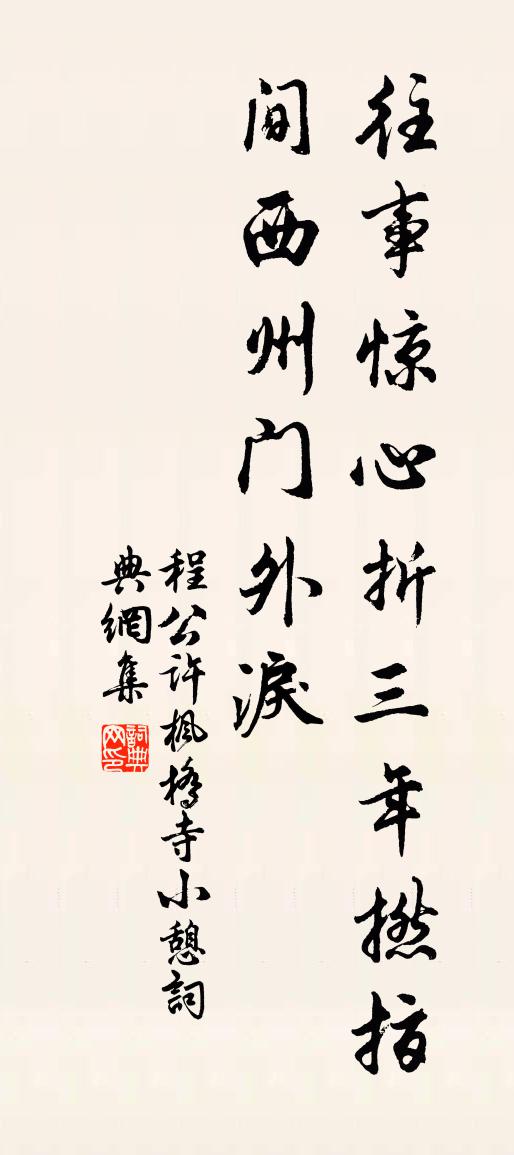 往事惊心折三年撚指
间西州门外淚
程公许枫橋寺小憩詞
典網集
詞典网印